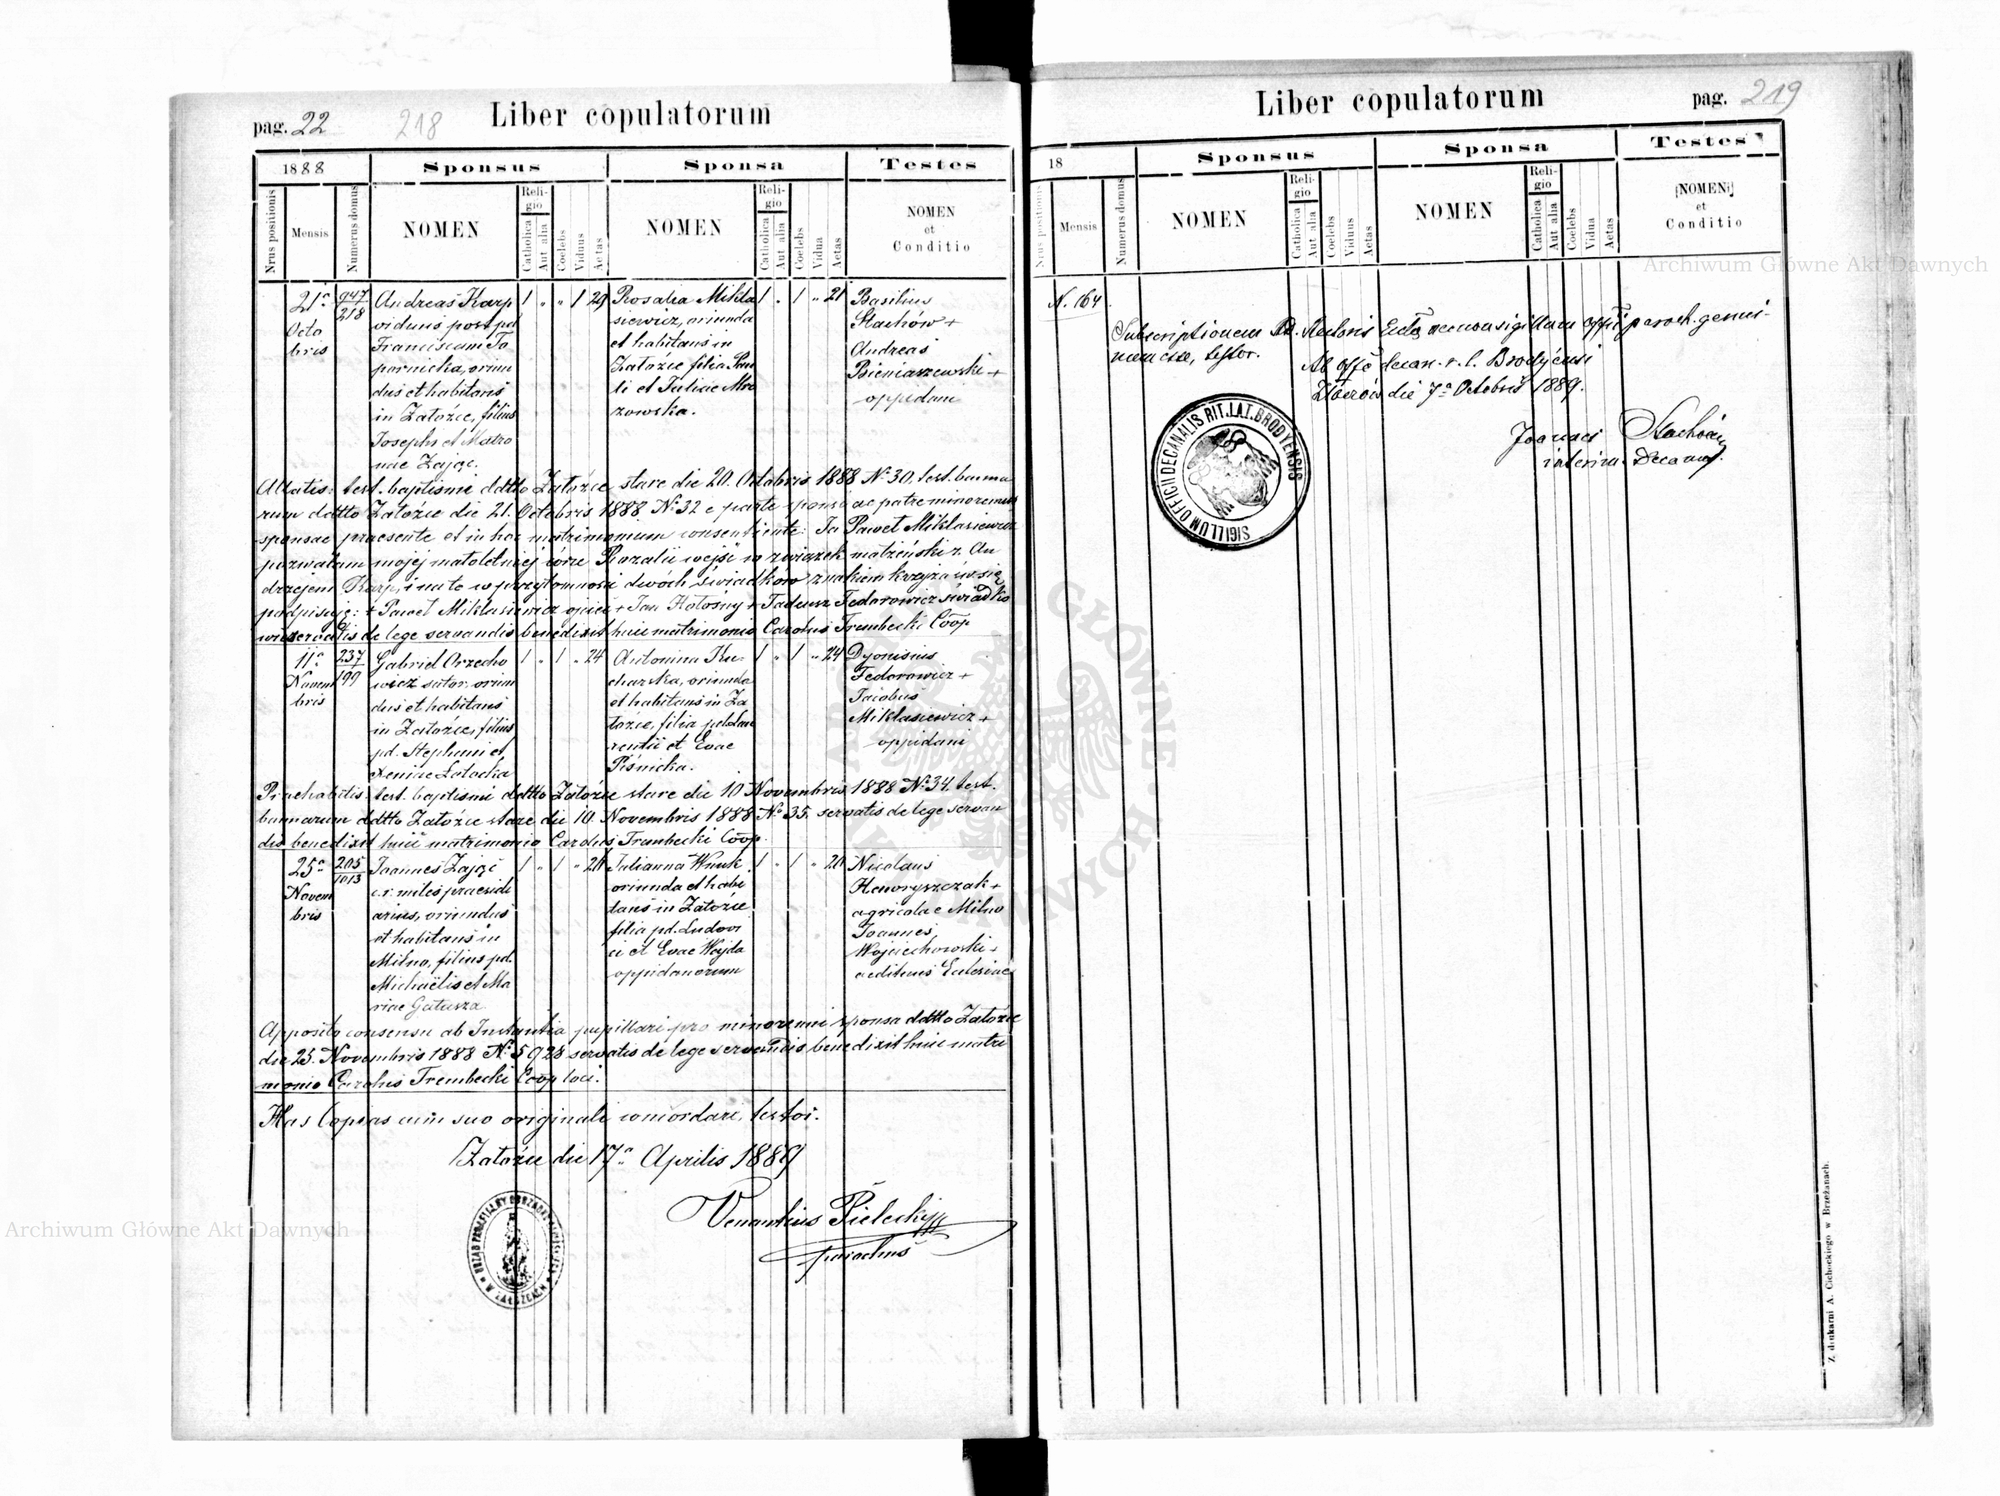 pag. 22
218
Liber copulatorum
1888
Sponsus
Sponsa
Testes
Nrus positionis
Mensis
Numerus domus
NOMEN
Religio
Catholica
Aut alia
Coelebs
Viduus
Aetas
NOMEN
Religio
Catholica
Aut alia
Coelebs
Vidua
Aetas
NOMEN
et
Conditio
21a
Octo
bris
947
218
Andreas Karp
viduus post pd
Franciscam Ta
pornicka, oriun
dus et habitans
in Załoźce, filius
Josephi et Matro
nae Zając.
1 „ „ 1 29
Rosalia Mikla
siewicz, oriunda
et habitans in
Załoźce filia Pau
li et Juliae Mro
zowska.
1 „ 1 „ 21
Basilius
Stachów +
Andreas
Bieniaszewski +
oppidani
Allatis: test. baptismi ddtto Załoźce stare die 20. Octobris 1888 No 30. test. banno
rum ddtto Załoźce die 21. Octobris 1888 No 32 e parte sponsi ac patre minorennis
sponsae praesente et in hoc matrimonium consentiente: Ja Paweł Miklasiewicz
pozwalam mojej małoletniej córce Rozalii wejść w związek małżeński z An
drzejem Karp, i na to w przytomności dwóch świadków znakiem krzyża św się
podpisuję: + Paweł Miklasiewicz ojciec + Jan Hołośny + Tadeusz Fedorowicz świadko
wie servatis de lege servandis benedixit huic matrimonio Carolus Trembecki Coop
11a
Novem
bris
237
199
Gabriel Orzecho
wicz sutor, oriun
dus et habitans
in Załoźce, filius
pd. Stephani et
Xeniae Łotocka
1 „ 1 „ 24
Antonina Ku
charska, oriunda
et habitans in Za
łoźce, filia pd. Lau
rentii et Evae
Piśnicka.
1 „ 1 „ 24
Dyonisius
Fedorowicz +
Jacobus
Miklasiewicz +
oppidani
Praehabitis: test. baptismi ddtto Załoźce stare die 10 Novembris 1888 No 34. test.
bannorum ddtto Załoźce stare die 10. Novembris 1888 No 35. servatis de lege servan
dis benedixit huic matrimonio Carolus Trembecki Coop.
25a
Novem
bris
205
1013
Joannes Zając
c.r. miles praesidi
arius, oriundus
et habitans in
Milno, filius pd.
Michaëlis et Ma
riae Gałusza
1 „ 1 „
Julianna Wnuk
oriunda et habi
tans in Załoźce
filia pd. Ludovi
ci et Evae Wojda
oppidanorum
1 „ 1 „
Nicolaus
Haworyszczak +
agricola e Milno
Joannes
Wojciechowski +
aedituus Eclesiae
Apposito consensu ab Instantia pupillari pro minorenni sponsa ddtto Załoźce
die 25. Novembris 1888 No 5928 servatis de lege servandis benedixit huic matri
monio Carolus Trembecki Coop loci.
Has Copias cum suo originali concordare, testor.
Załoźce die 17a Aprilis 1889
Venantius Pielecki
parochus
W ZAŁOZCACH
Liber copulatorum
pag. 219
18
Sponsus
Sponsa
Testes
Nrus positionis
Mensis
Numerus domus
NOMEN
Religio
Catholica
Aut alia
Coelebs
Viduus
Aetas
NOMEN
Religio
Catholica
Aut alia
Coelebs
Vidua
Aetas
NOMEN
et
Conditio
N. 164
Subscriptionem Rectoris Eccl. necnon sigillum offii paroch. genui-
num esse, testor.
Ab offo decan. r. l. Brodyensi
Zborów die 7a Octobris 1889.
Joannes
interim. Decanus
SIGILLUM OFFICII DECANALIS RIT. LAT. BRODYENSIS
Z drukarni A. Cichockiego w Brzeżanach.
Archiwum Główne Akt Dawnych
Archiwum Główne Akt Dawnych